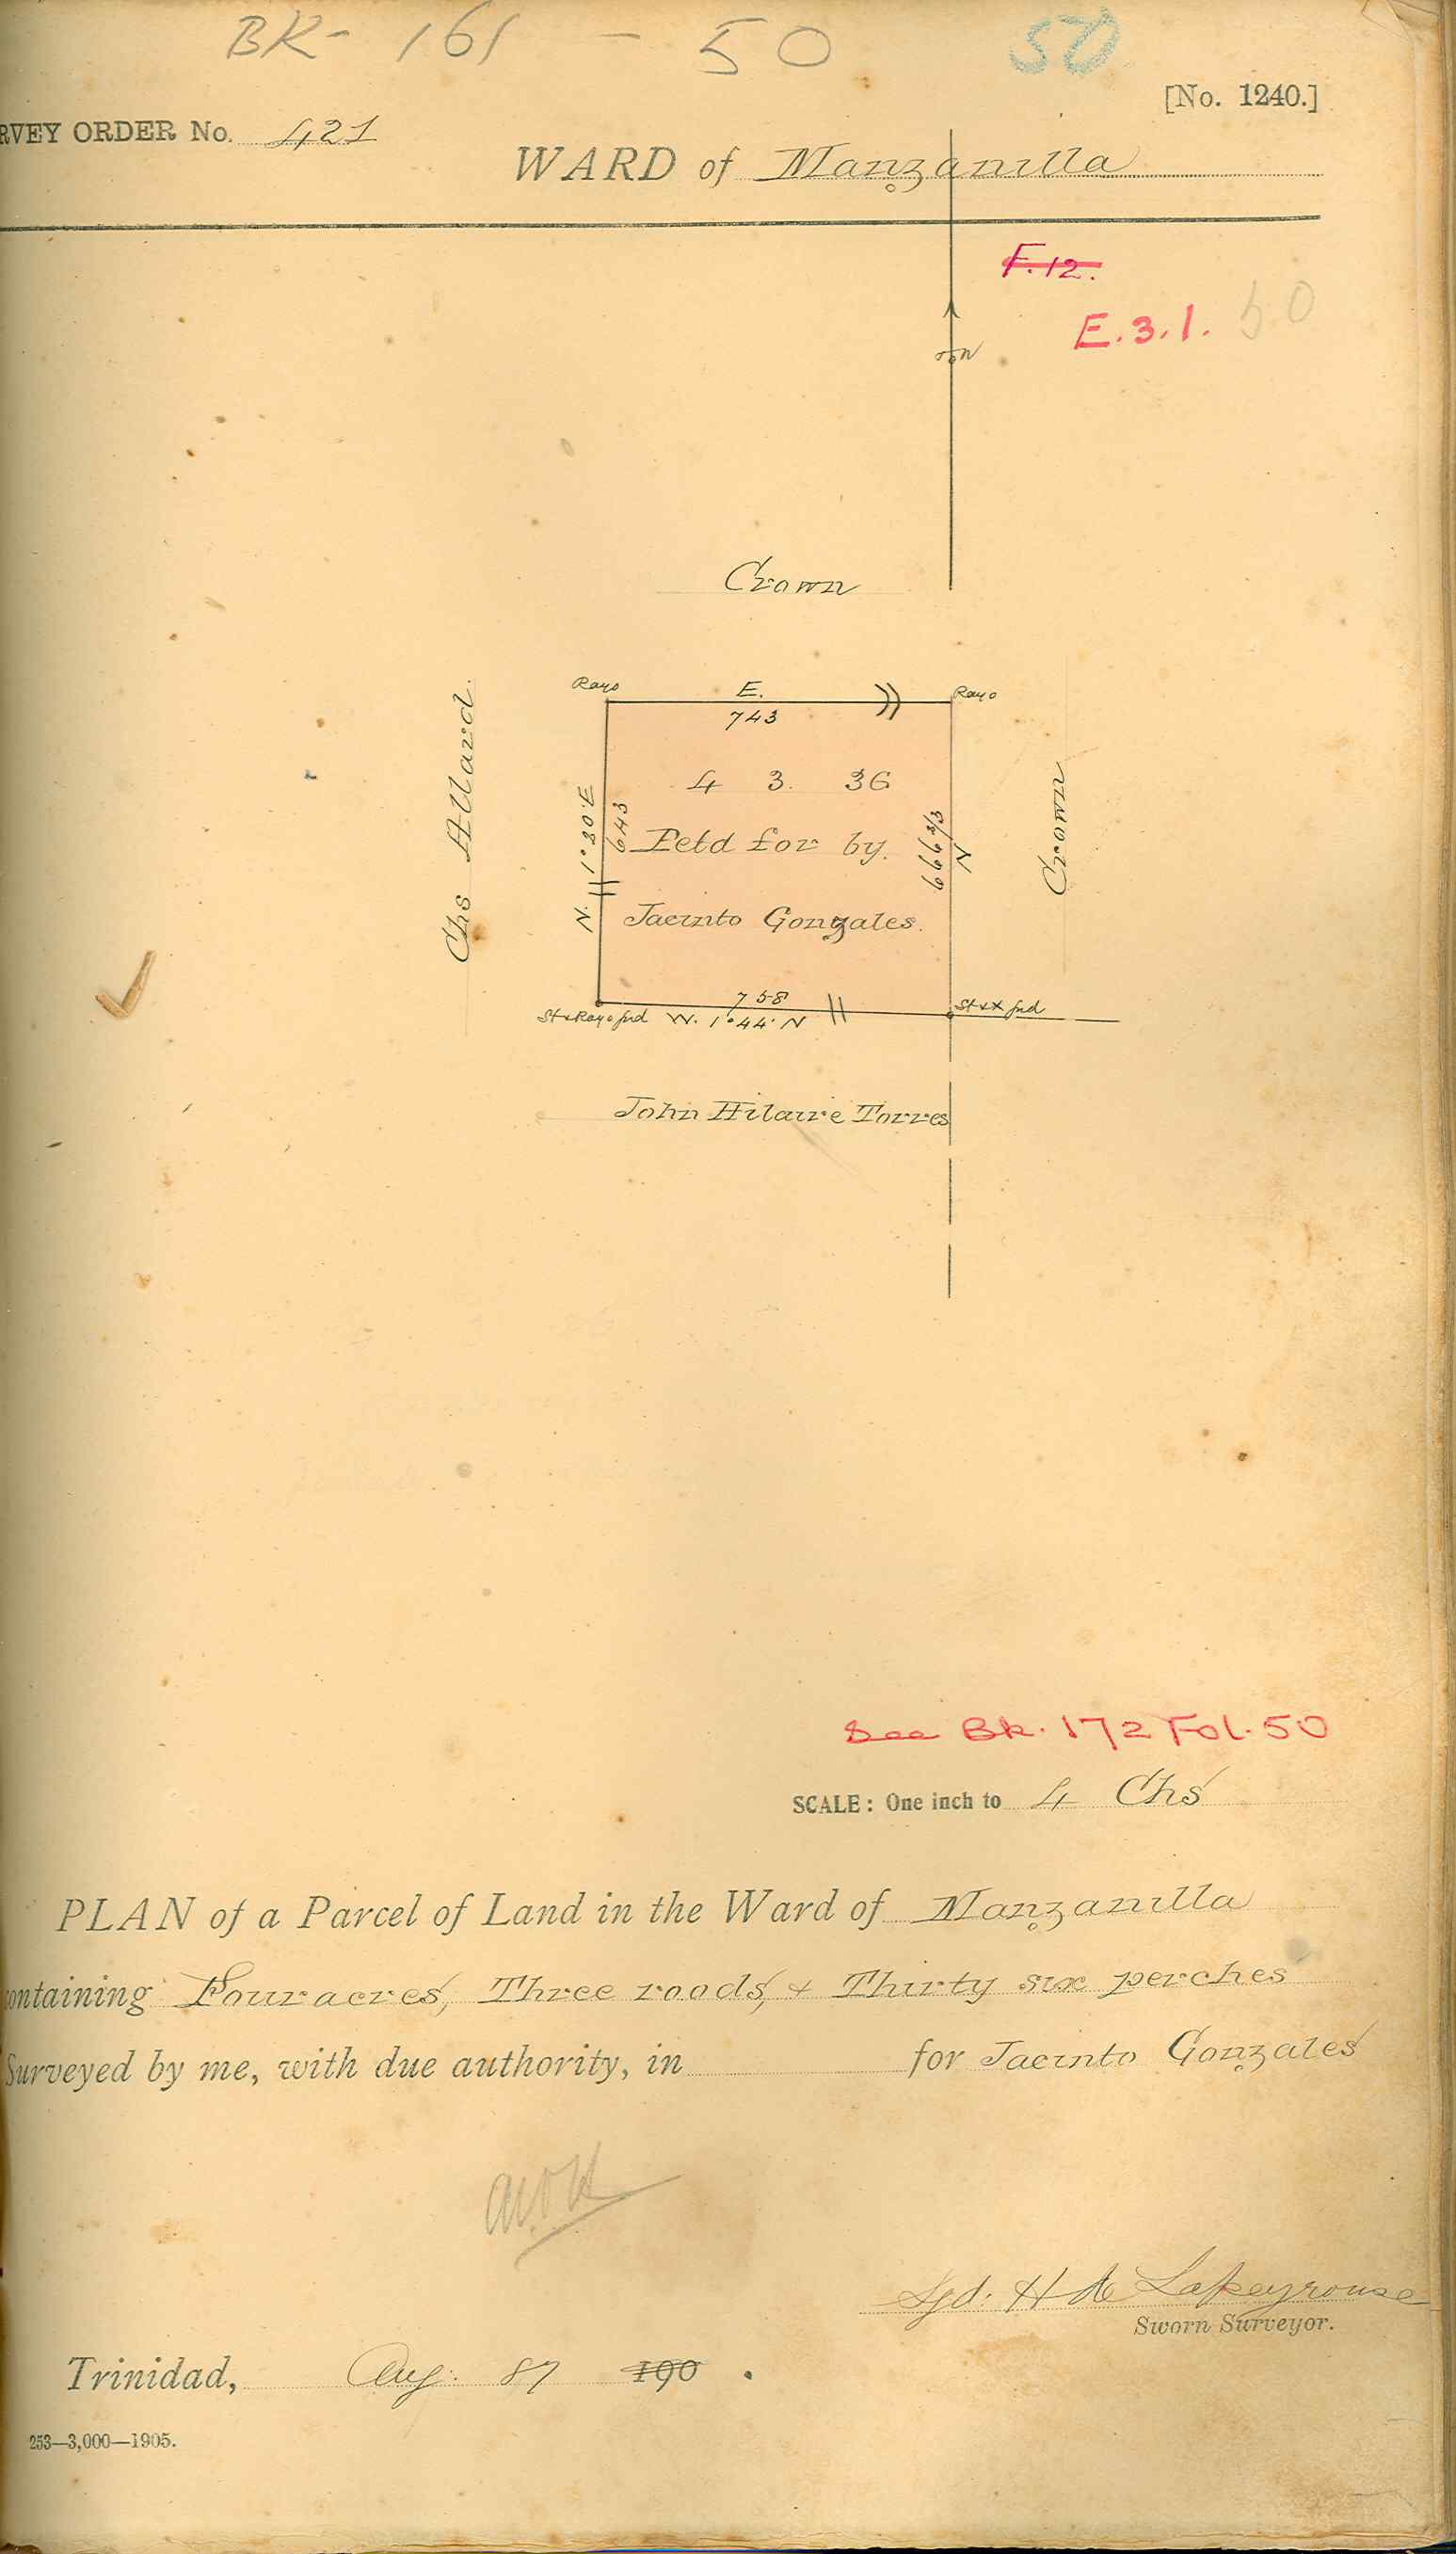 BK- 161 - 50 50
[No. 1240.]
RVEY ORDER No. 421
WARD of Manzanilla
F.12.
E.3.1. 50
Crown
Rayo E. Rayo
743
Chs Allard.
N. 1°30'E
643
4 3. 36
Petd for by.
Jacinto Gonzales.
666 2/3
N
Crown
758
St & Rayo fnd W. 1°44' N St & X fnd
John Hilaire Torres
See Bk. 172 Fol. 50
SCALE: One inch to 4 Chs
PLAN of a Parcel of Land in the Ward of Manzanilla
ontaining Four acres, Three roods, & Thirty six perches
Surveyed by me, with due authority, in for Jacinto Gonzales
Sgd: H de Lapeyrouse
Sworn Surveyor.
Trinidad, Aug: 87 190 .
253—3,000—1905.